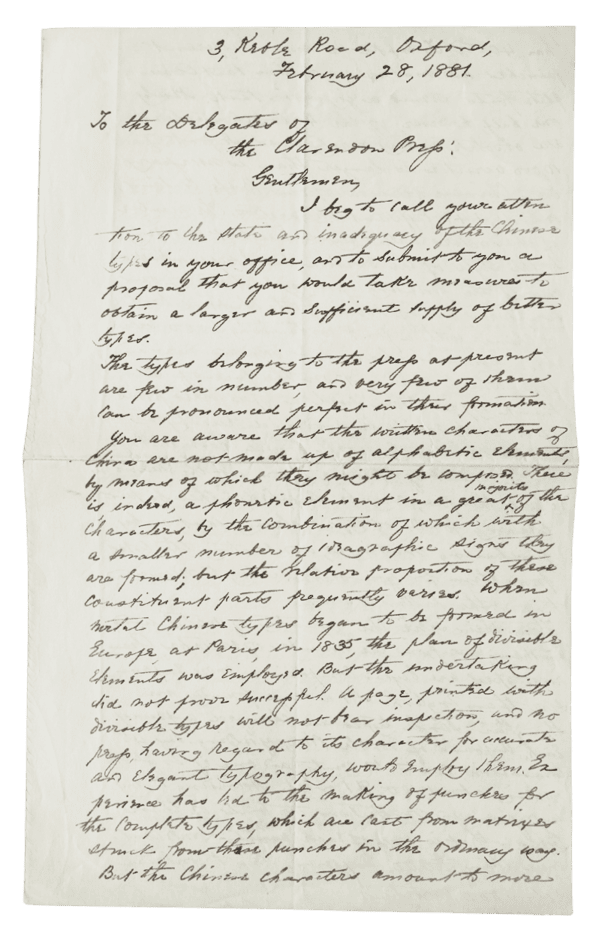 3, Keble Road, Oxford,
February 28, 1881.
To the Delegates of
the Clarendon Press:
Gentlemen,
I beg to call your atten
tion to the state and inadequacy of the Chinese
types in your office, and to submit to you a
proposal that you would take measures to
obtain a larger and sufficient supply of better
types.
The types belonging to the press at present
are few in number, and very few of them
can be pronounced perfect in their formation.
You are aware that the written characters of
China are not made up of alphabetic elements,
by means of which they might be composed. There
is indeed, a phonetic element in a great majority of the
characters, by the combination of which with
a smaller number of ideagraphic signs they
are formed; but the relative proportion of these
constituent parts frequently varies. When
metal Chinese types began to be formed in
Europe, at Paris, in 1835, the plan of divisible
elements was employed. But the undertaking
did not prove successful. A page, printed with
divisible types will not bear inspection, and no
press, having regard to its character for accurate
and elegant typography, would employ them. Ex
perience has led to the making of punches for
the complete types, which are cast from matrixes
struck from these punches in the ordinary way.
But the Chinese characters amount to more